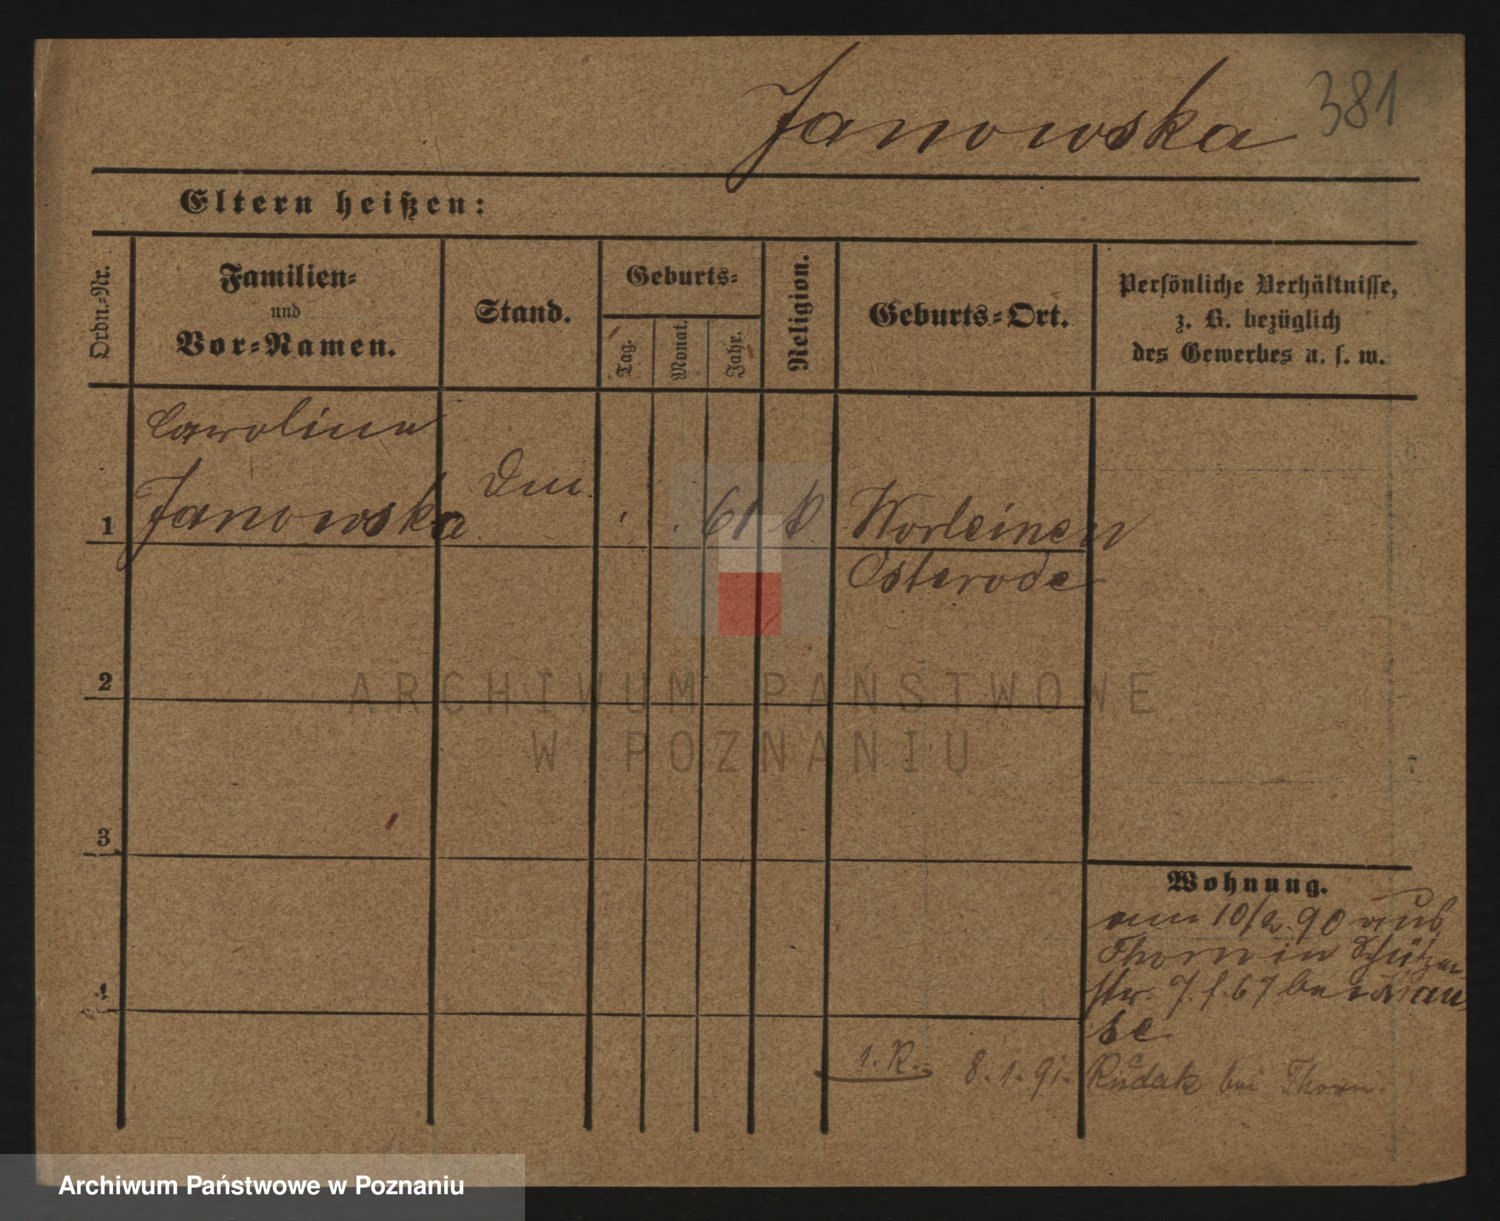 Janowska 381
Eltern heißen:
Ordn.-Nr.
Familien-
und
Vor-Namen.
Stand.
Geburts-
Tag.
Monat.
Jahr.
Religion.
Geburts-Ort.
Persönliche Verhältnisse,
z. B. bezüglich
des Gewerbes u. s. w.
Caroline
1 Janowska 61 k Worleinen
Osterode
2
ARCHIWUM PAŃSTWOWE
W POZNANIU
3
Wohnung.
am 10/2. 90 aus
Thorn in Schützen
str. 7. f. 67 bei
4
1. R. 8.1.91. Rudak bei Thorn.
Archiwum Państwowe w Poznaniu